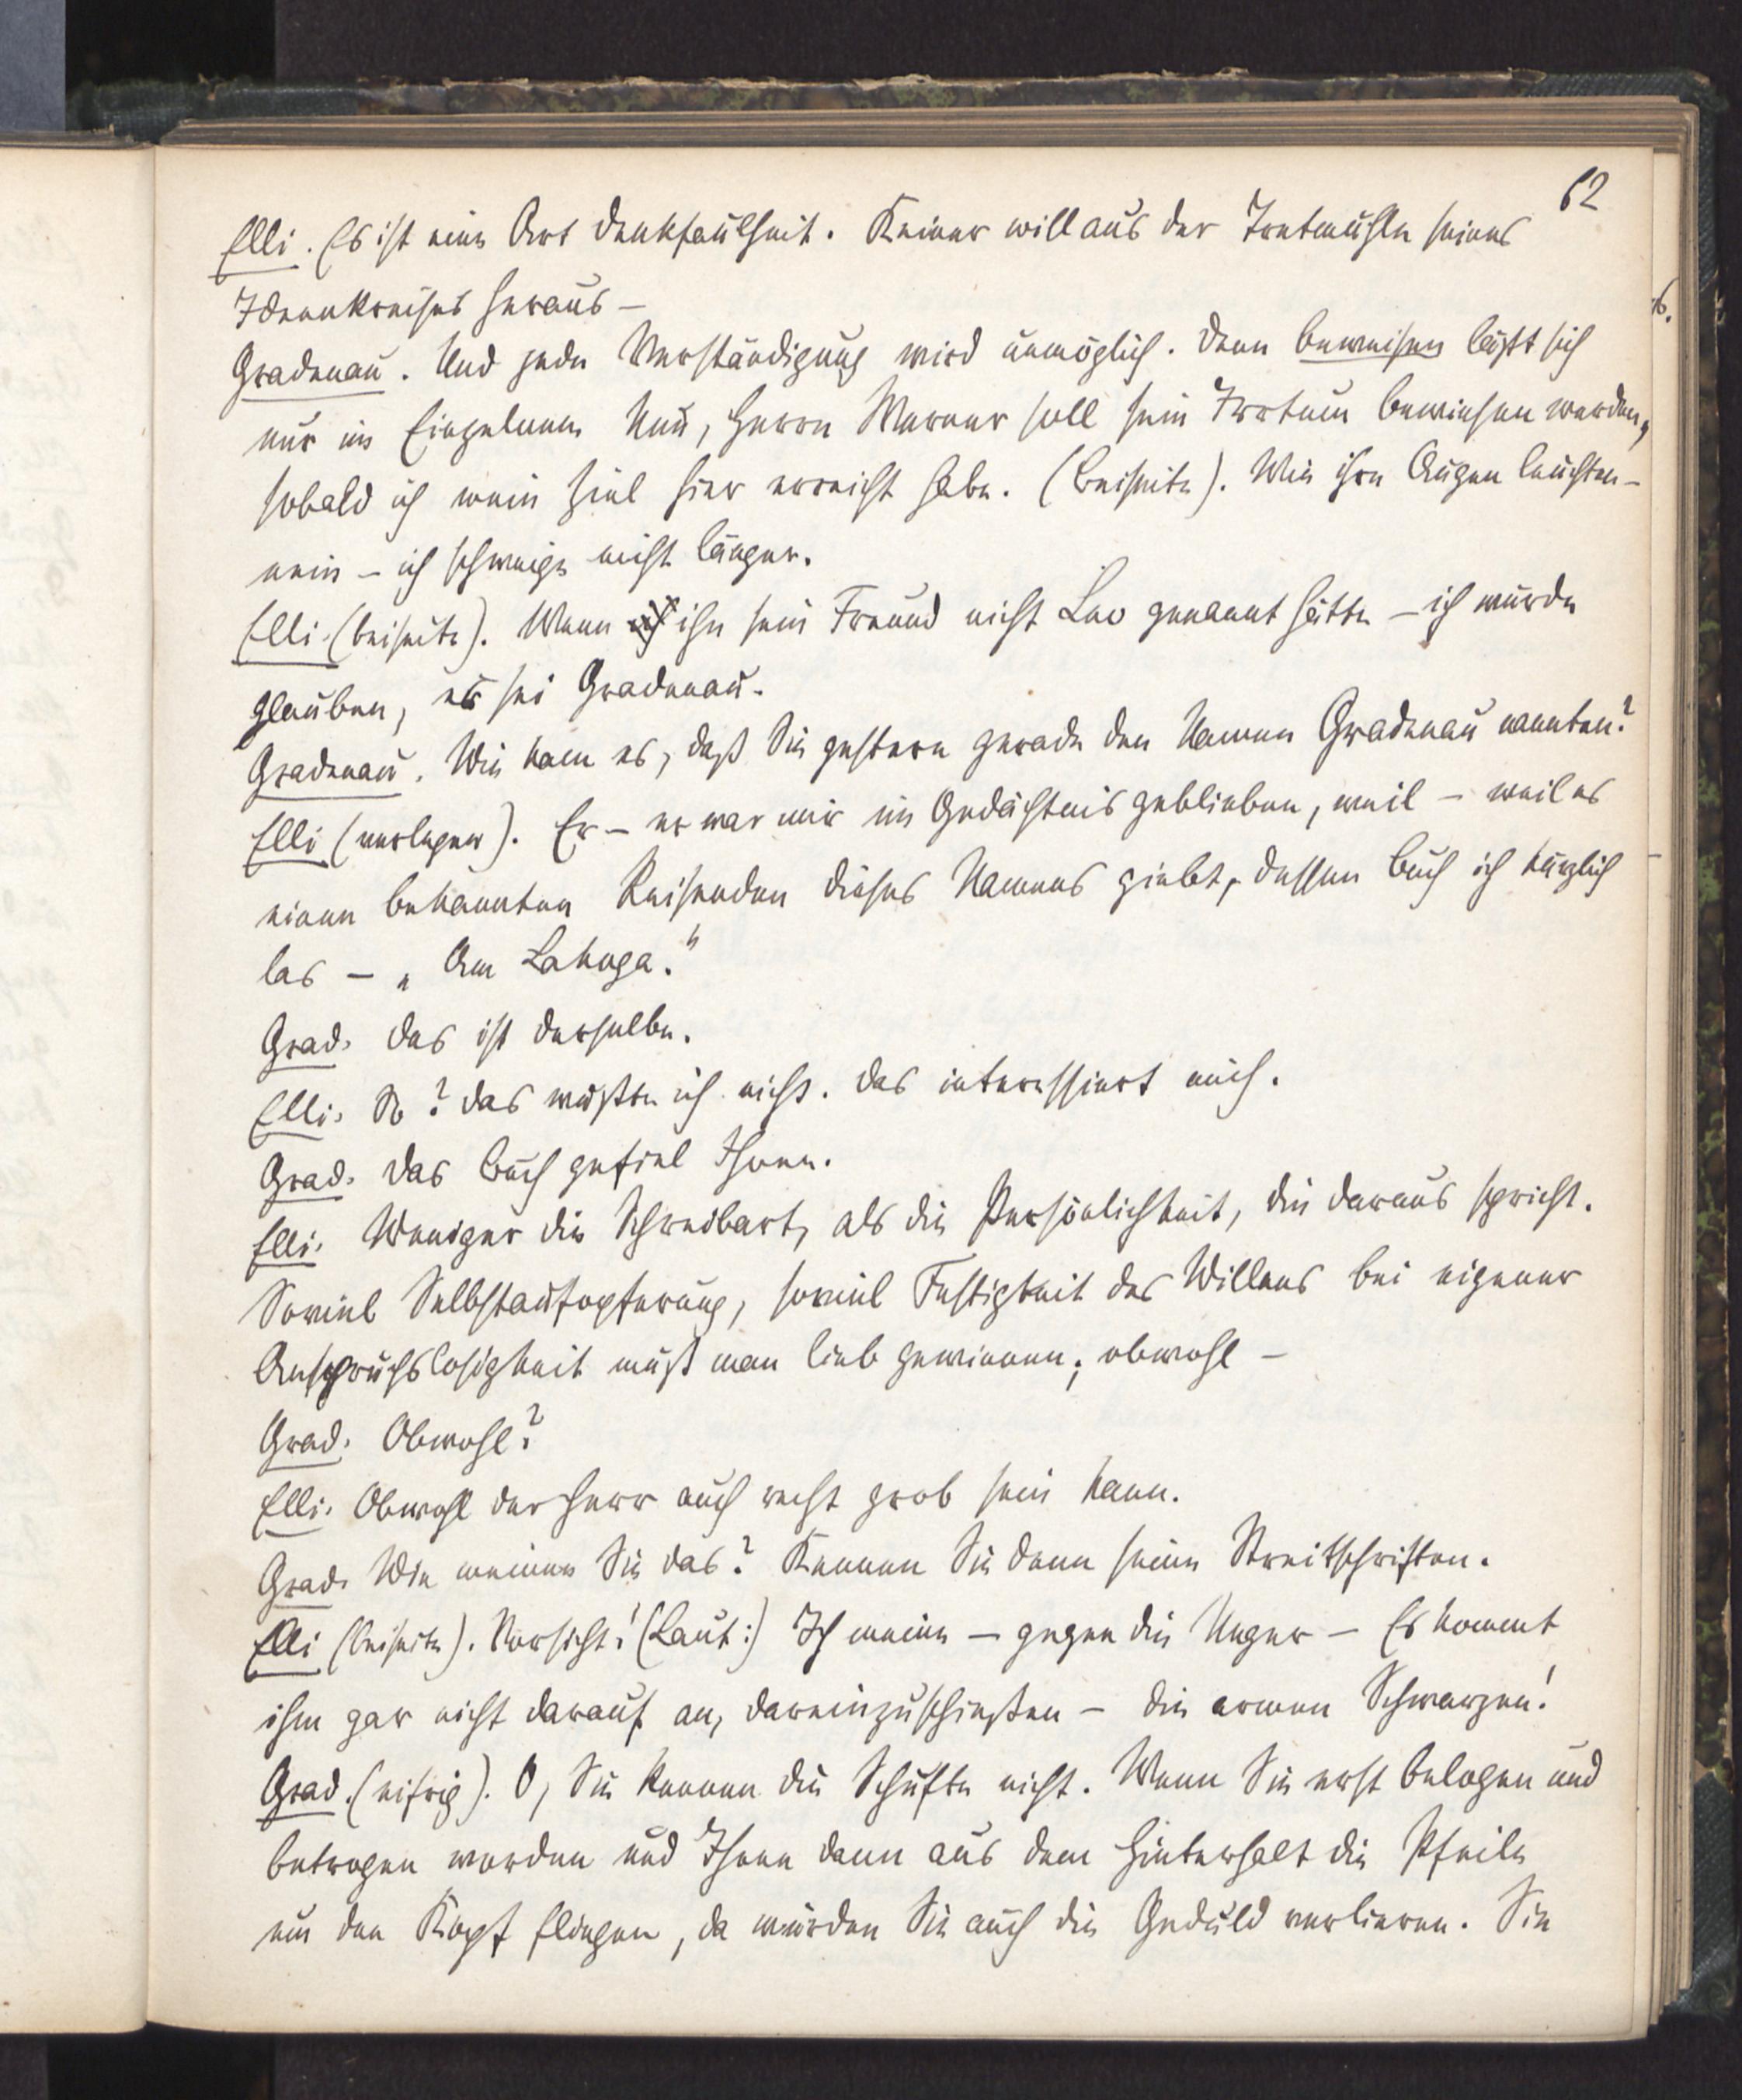 62
Elli. Es ist eine Art Denkfaulheit. Keiner will aus der Tretmühle seines
Ideenkreises heraus –
Gradenau. Und jede Verständigung wird unmöglich. Denn beweisen läßt sich
nur im Einzelnen. Nun, Herrn Werner soll sein Irrtum bewiesen werden,
sobald ich mein Ziel hier erreicht habe. (Beiseite). Wie ihre Augen leuchten –
nein – ich schweige nicht länger.
Elli (beiseite). Wenn ihn sein Freund nicht Leo genannt hätte – ich würde
glauben, es sei Gradenau.
Gradenau. Wie kam es, daß Sie gestern gerade den Namen Gradenau nannten?
Elli (verlegen). Er – er war mir im Gedächtnis geblieben, weil – weil es
einen bekannten Reisenden dieses Namens giebt, dessen Buch ich kürzlich
las – „Am Lakuga."
Grad. Das ist derselbe.
Elli. So? Das wußte ich nicht. Das interessiert mich.
Grad. Das Buch gefiel Ihnen.
Elli. Weniger die Schreibart, als die Persönlichkeit, die daraus spricht.
Soviel Selbstaufopferung, soviel Festigkeit des Willens bei eigener
Anspruchslosigkeit muß man lieb gewinnen; obwohl –
Grad. Obwohl?
Elli. Obwohl der Herr auch recht grob sein kann.
Grad. Wie meinen Sie das? Kennen Sie denn seine Streitschriften.
Elli (beiseite). Vorsicht! (Laut:) Ich meine – gegen die Neger – Es kommt
ihm gar nicht darauf an, dareinzuschießen – die armen Schwarzen!
Grad. (eifrig). O, Sie kennen die Schufte nicht. Wenn Sie erst belogen und
betrogen worden und Ihnen dann aus dem Hinterhalt die Pfeile
um den Kopf fliegen, da würden Sie auch die Geduld verlieren. Sie